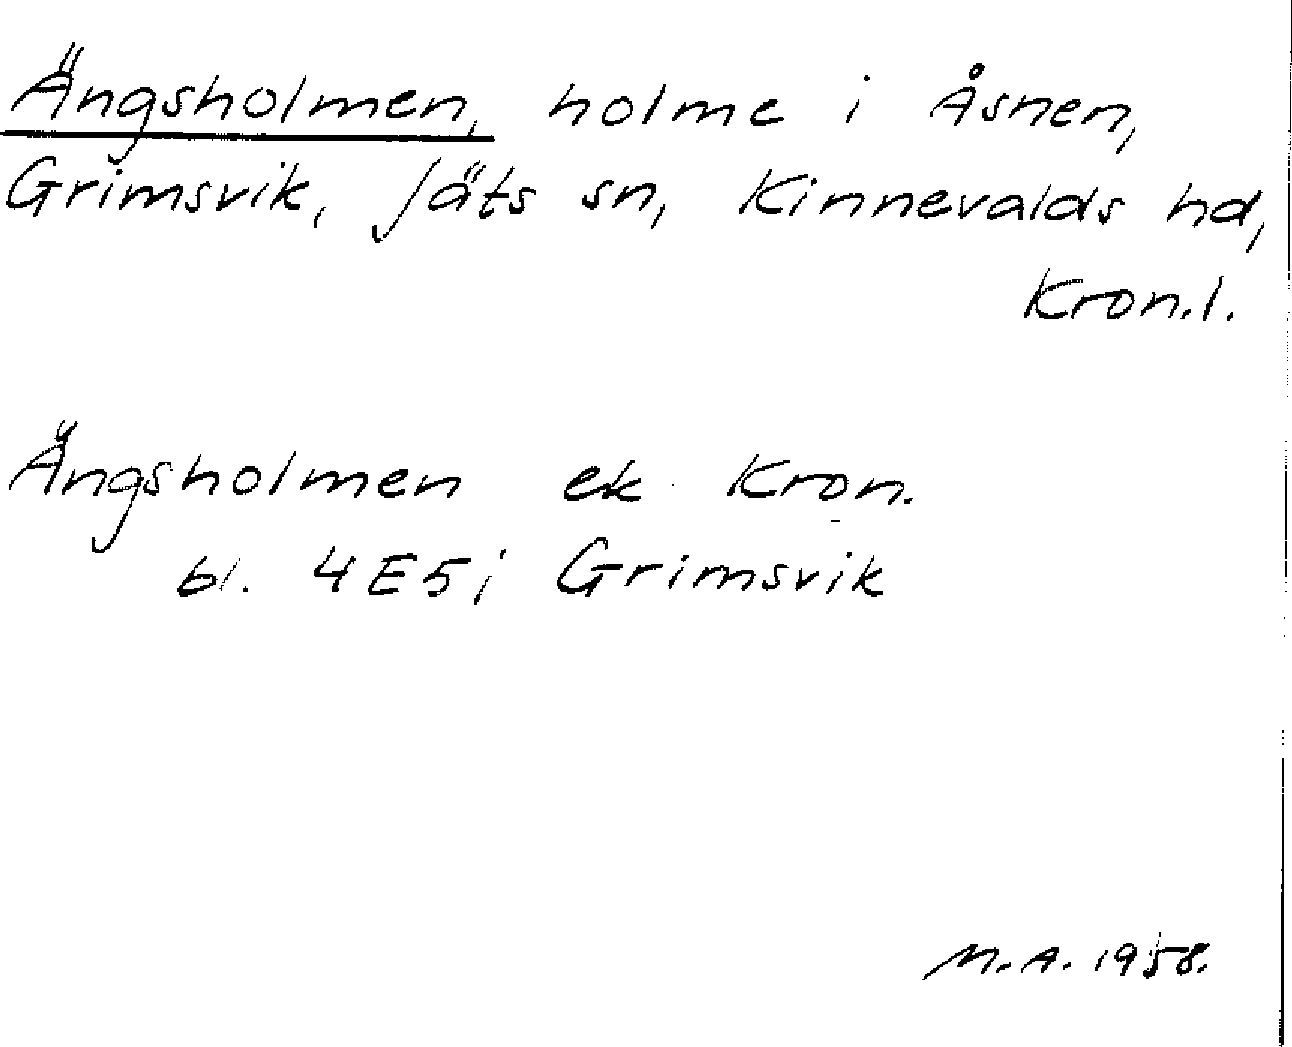 Ängsholmen, holme i Åsnen,
Grimsvik, Jäts sn, Kinnevalds hd,
Kron.l.
Ängsholmen ek Kron.
bl. 4E5; Grimsvik
M.A. 1958.